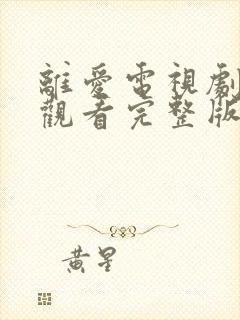 離愛電視劇
觀看完整版
黃星